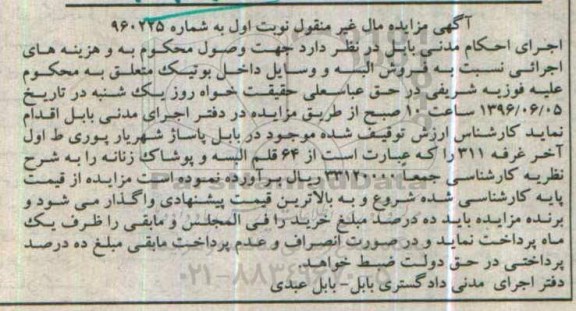 آگهی مزایده مال غیر منقول نوبت اول به شماره ۹۶۰۲۲۵
اجرای احکام مدنی بابل در نظر دارد جهت وصول محکوم به و هزینه های
اجرائی نسبت به فروش البسه و وسایل داخل بوتیک متعلق به محکوم
علیه فوزیه شریفی در حق عباسعلی حقیقت خواه روز یک شنبه در تاریخ
۱۳۹۶/۰۶/۰۵ ساعت ۱۰ صبح از طریق مزایده در دفتر اجرای مدنی بابل اقدام
نماید کارشناس ارزش توقیف شده موجود در بابل پاساژ شهریار پوری ط اول
آخر غرفه ۳۱۱ را که عبارت است از ۶۴ قلم البسه و پوشاک زنانه را به شرح
نظریه کارشناسی جمعا ۲۳۱۲۰۰۰۰ ریال برآورده نموده است مزایده از قیمت
پایه کارشناسی شده شروع و به بالاترین قیمت پیشنهادی واگذار می شود و
برنده مزایده باید ده درصد مبلغ خرید را فی المجلس و مابقی را ظرف یک
ماه پرداخت نماید و در صورت انصراف و عدم پرداخت مابقی مبلغ ده درصد
پرداختی در حق دولت ضبط خواهد
دفتر اجرای مدنی دادگستری بابل- بابل عبدی